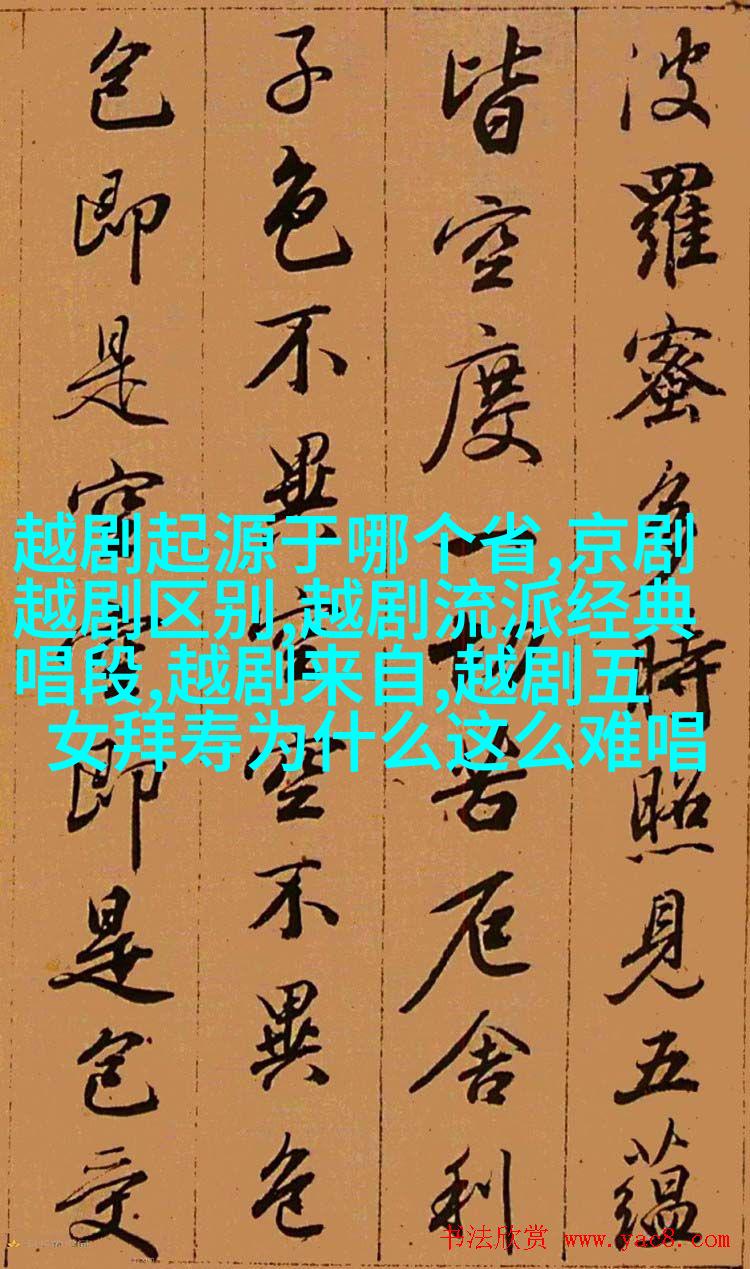 波羅蜜多時照見五蘊
皆空度一切苦厄舍利
子色不異空空不異色
色即是空空即是色受
越剧起源于哪个省,京剧
越剧区别,越剧流派经典
唱段,越剧来自,越剧五
女拜寿为什么这么难唱
书法欣赏 www.yac8.com